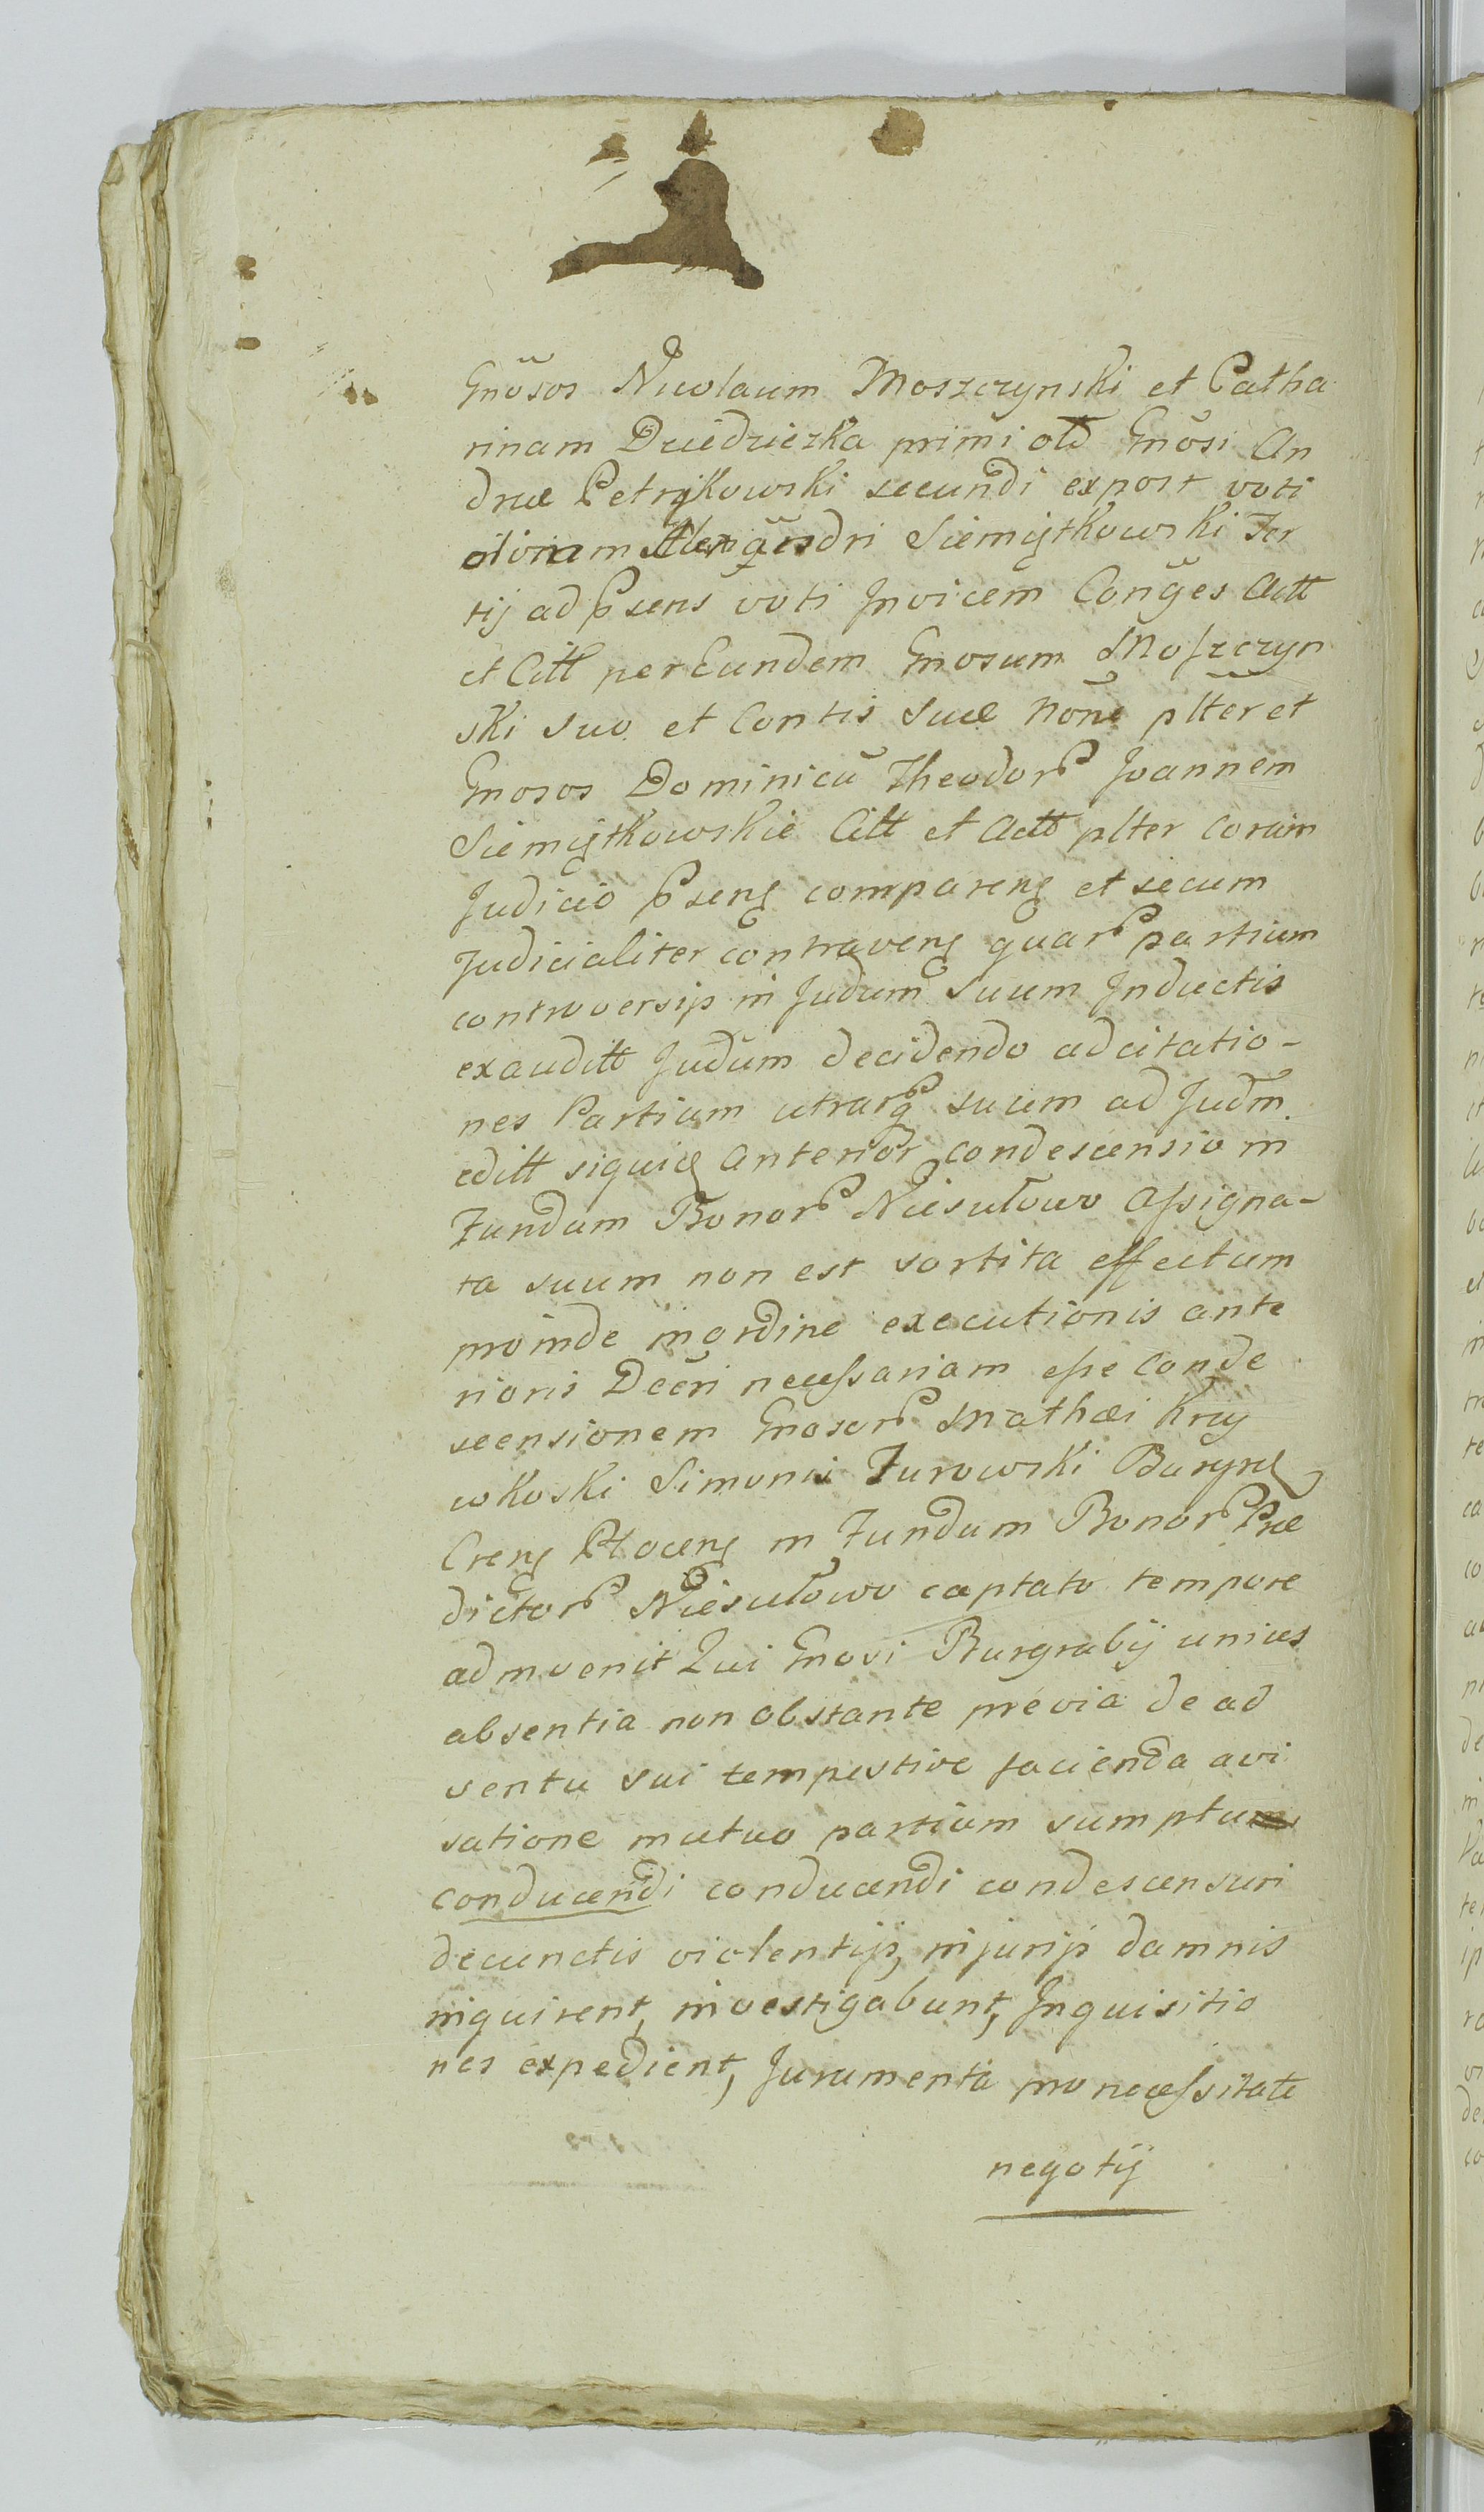 Gnosos Nicolaum Moszczynski et Catha
rinam Dziedzicka primi olt Gnosi An
dreæ Petrykowski secundi expost voti
Alexandri Siemiątkowski Ter
tij ad Psens voti Invicem Conges Actt
et Citt per Eundem Gnosum Moszczyn
ski suo et Contis suæ Noñe plter et
Gnosos Dominicũ Theodor Joannem
Siemiątkowskie Citt et Actt plter coram
Judicio Pseng compareng et secum
Judicialiter contraveng quar partium
controversijs in Judum suum Inductis
exauditt Judum decidendo ad citatio-
nes Partium utrarq suum ad Judm
editt siquid anterior condescensio in
Fundum Bonor Niesułowo assigna-
ta suum non est sortita effectum
proinde in ordine executionis ante
rioris Decri necessariam esse Conde
scensionem Gnosor Mathæi Krzy
wkoski Simonis Zurowski Burgrl
Creng Płoceng in Fundum Bonor Præ
dictor Niesułowo captato tempore
adinvenit Qui Gnosi Burgrabij unius
absentia non obstante prævia de ad
ventu sui tempestive facienda avi
satione mutuo partium sumptu
conducendi conducendi condescensuri
de cunctis violentijs, injurijs damnis
inquirent, investigabunt, Inquisitio
nes expedient, Juramenta pro necessitate
negotij